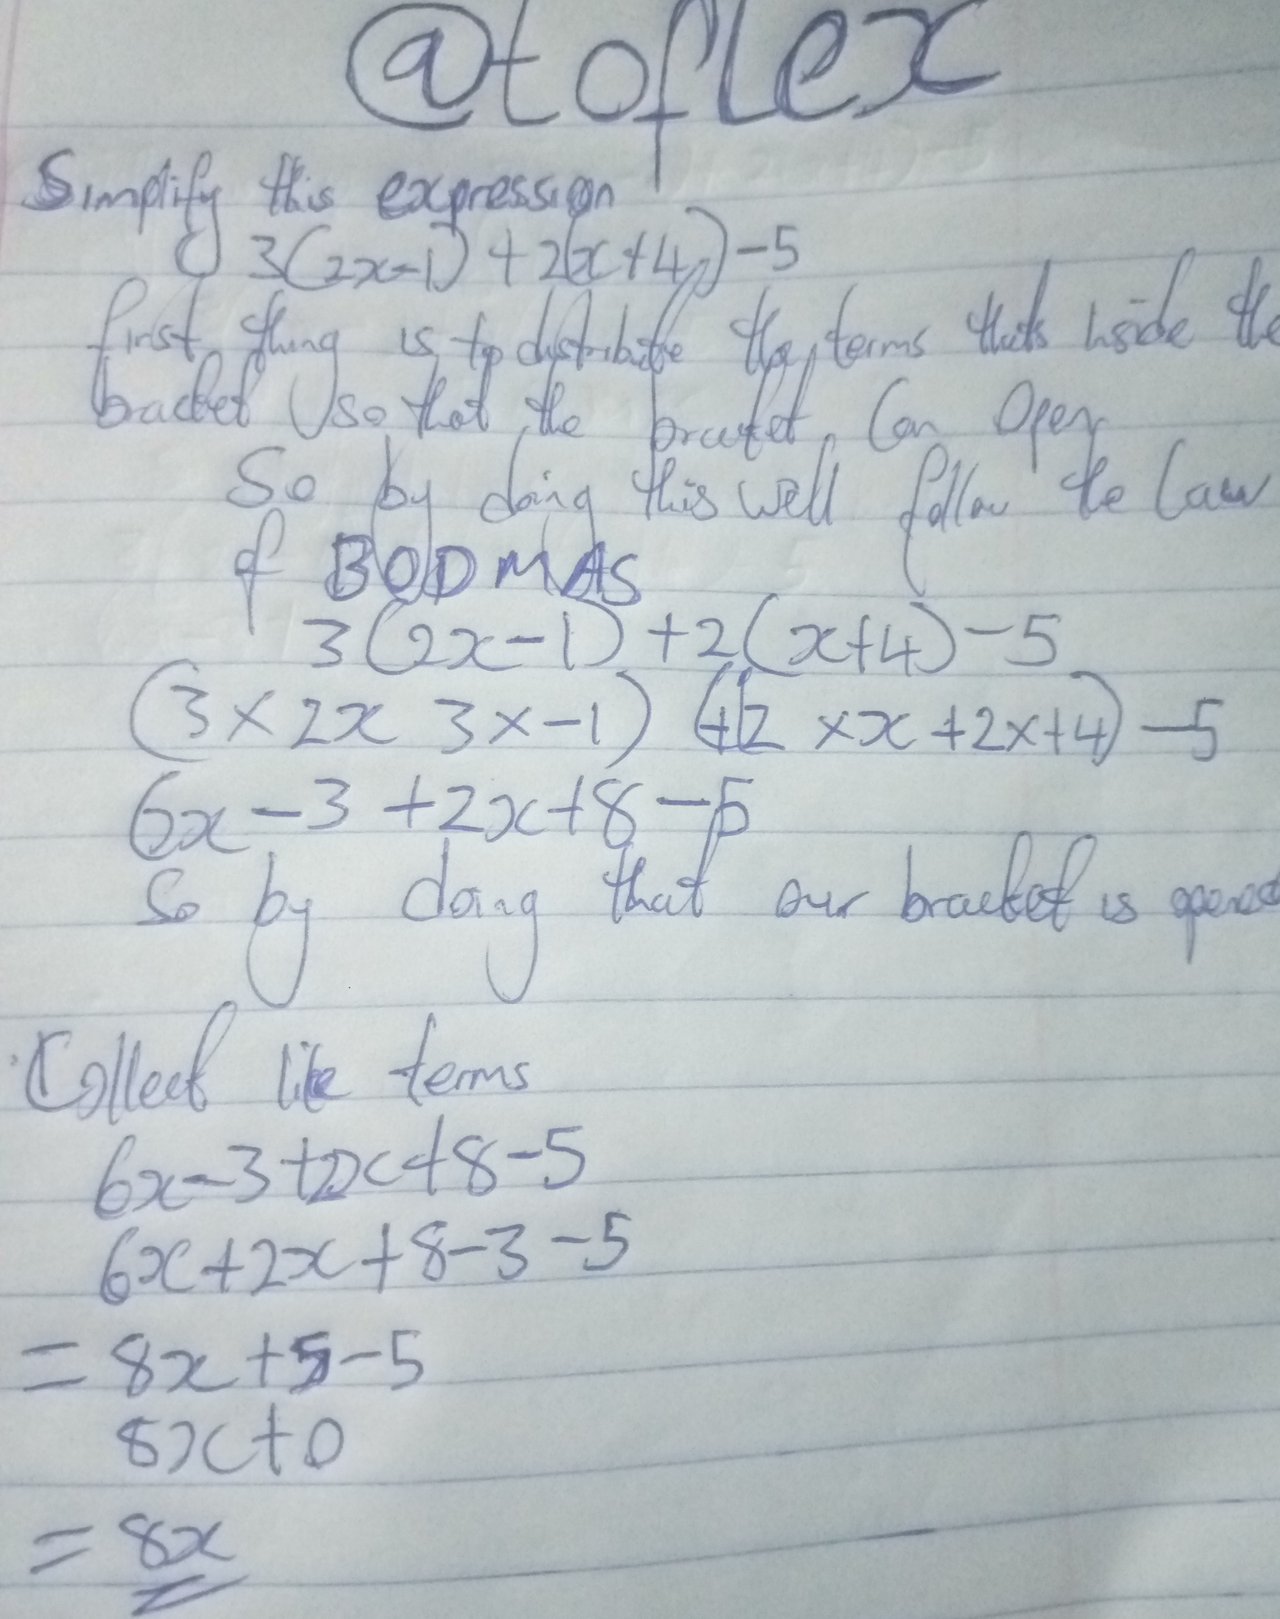 @toflex
Simplify this expression
3(2x-1) + 2(x+4) -5
first thing is to distribute the terms thats inside the
bracket so that the bracket can open
So by doing this well follow the law
of BODMAS
3(2x-1) +2(x+4) -5
(3 × 2x 3 × -1) (+2 × x +2×+4) -5
6x -3 +2x+8 -5
So by doing that our bracket is opened
Collect like terms
6x-3+2x+8-5
6x+2x+8-3-5
= 8x+5-5
8x+0
= 8x